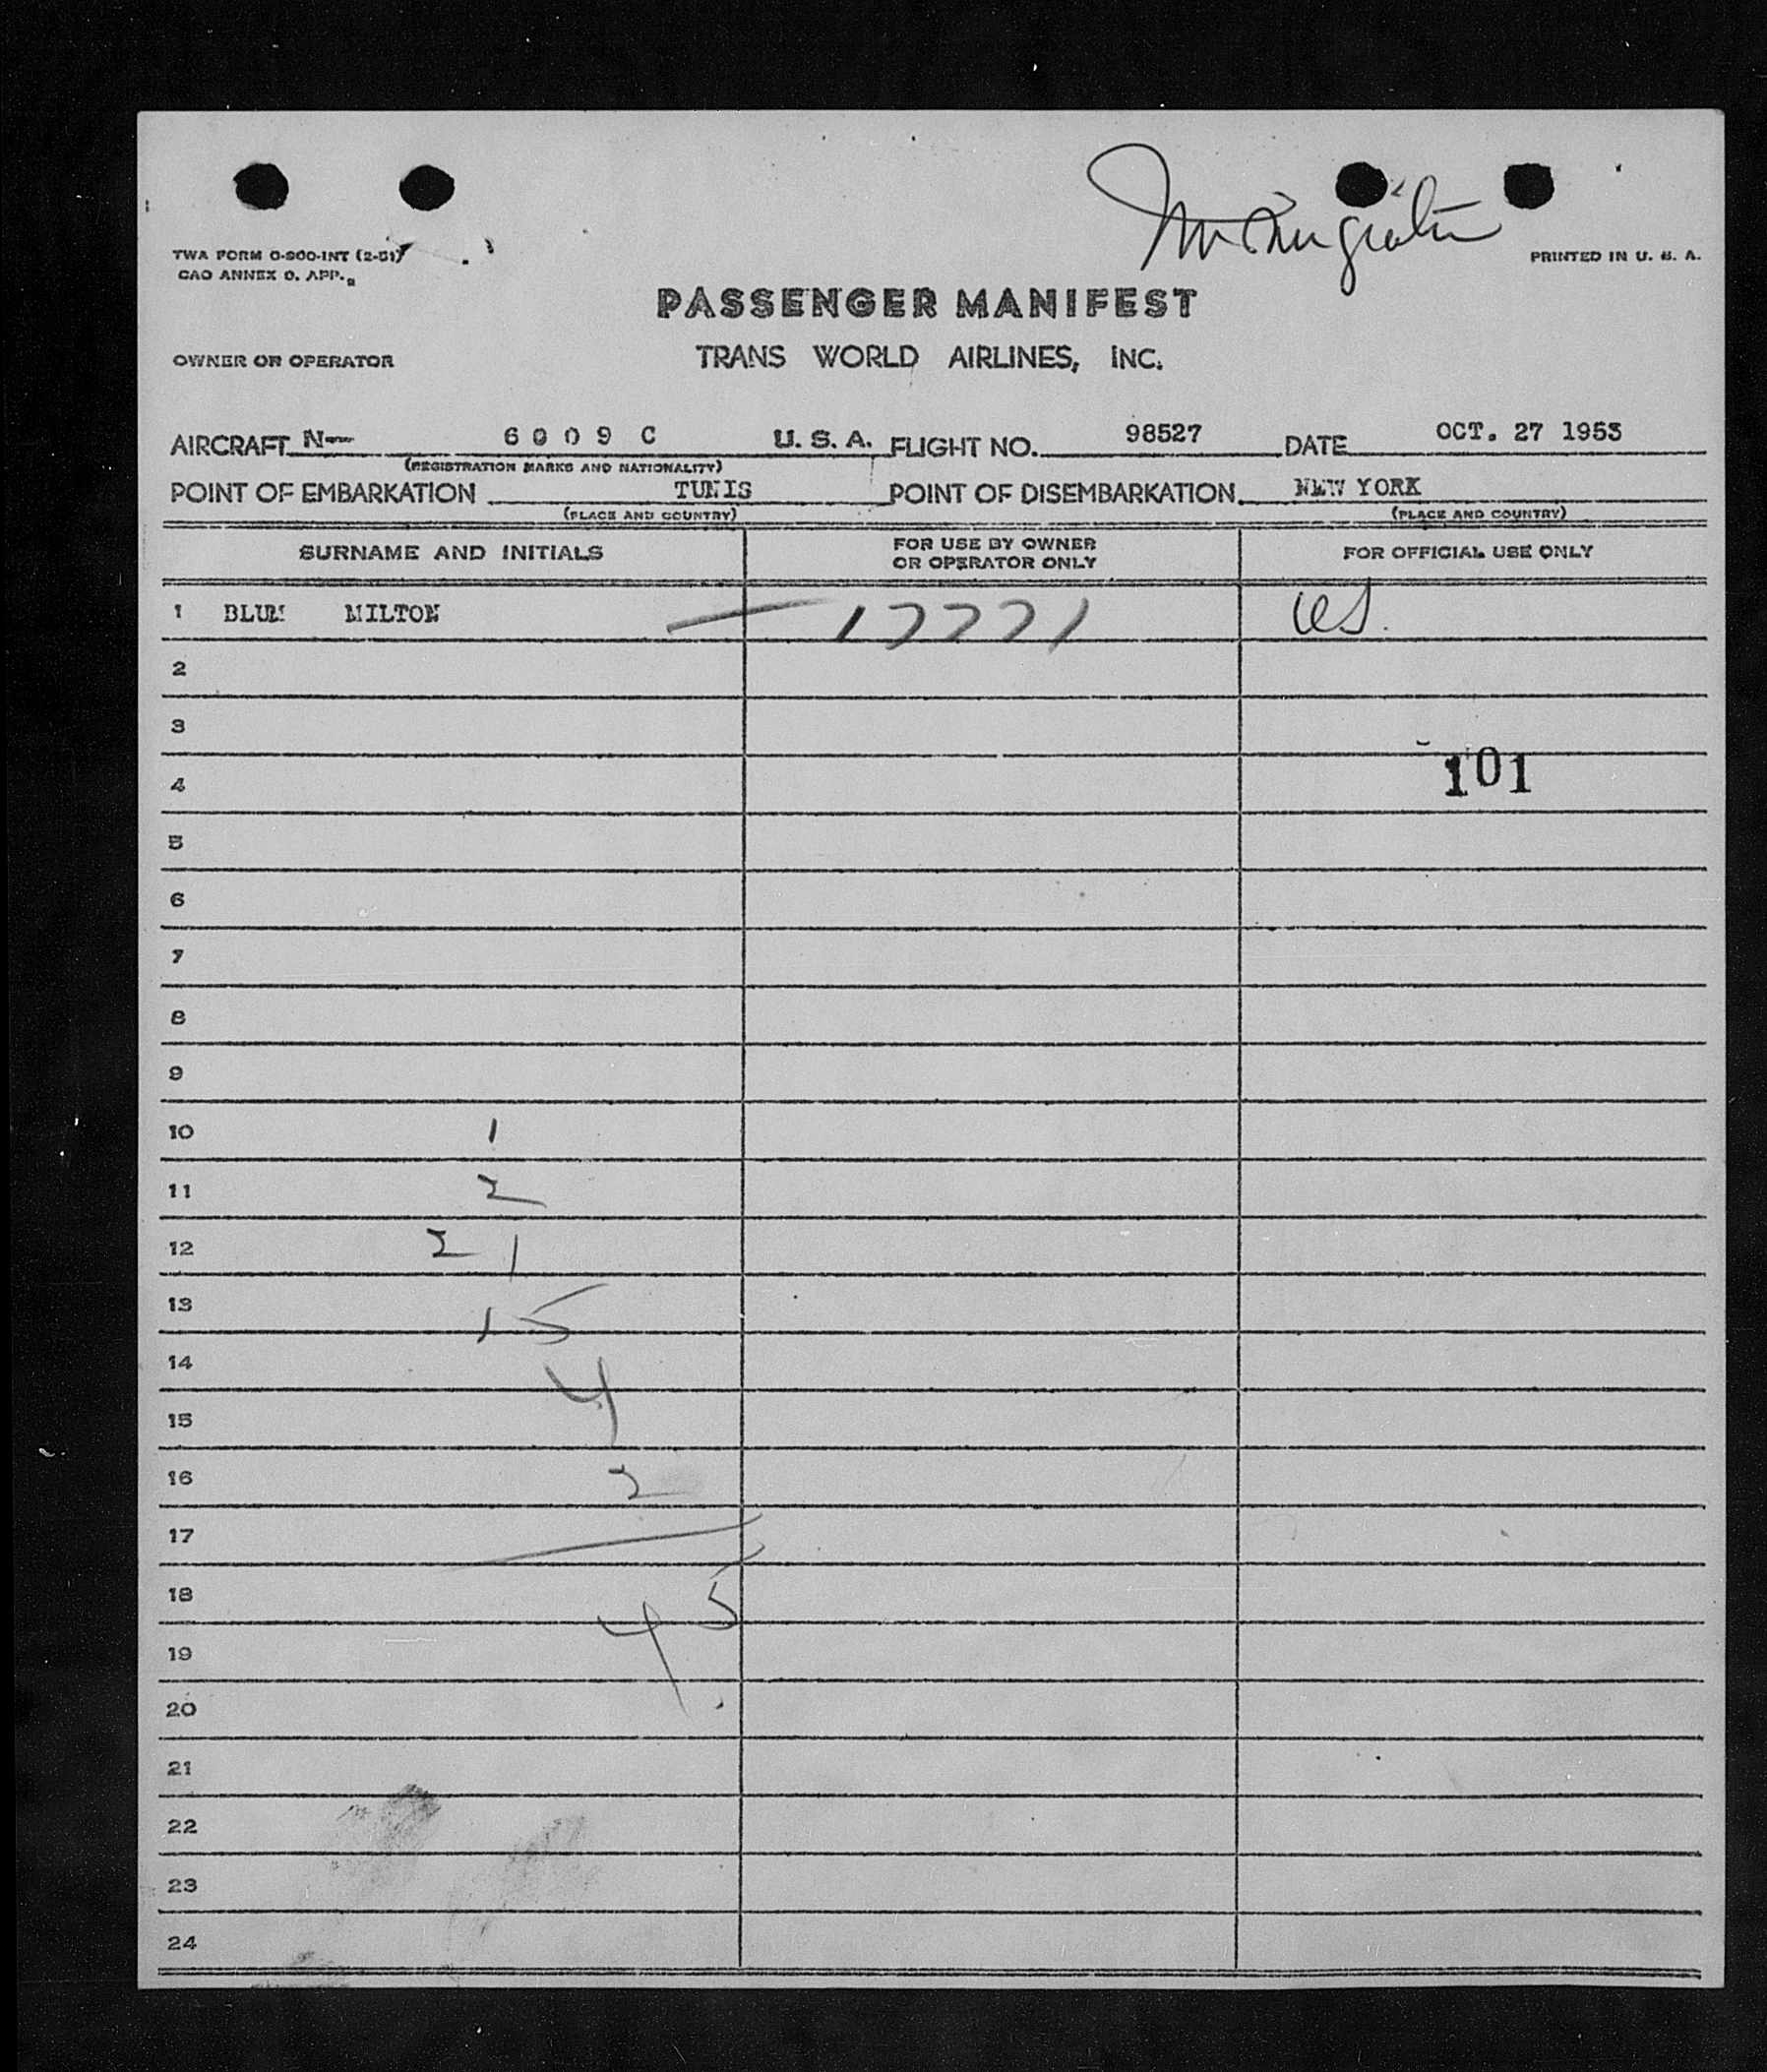 Immigration
TWA FORM O-900-INT (2-51)
CAO ANNEX 9. APP.
PRINTED IN U. S. A.
PASSENGER MANIFEST
OWNER OR OPERATOR TRANS WORLD AIRLINES, INC.
AIRCRAFT N— 6009 C U. S. A. FLIGHT NO. 98527 DATE OCT. 27 1953
(REGISTRATION MARKS AND NATIONALITY)
POINT OF EMBARKATION TUNIS POINT OF DISEMBARKATION NEW YORK
(PLACE AND COUNTRY) (PLACE AND COUNTRY)
SURNAME AND INITIALS FOR USE BY OWNER OR OPERATOR ONLY FOR OFFICIAL USE ONLY
1 BLUM MILTON — 17771
2
3
4 101
5
6
7
8
9
10 1
11 2
12 21
13 15
14 4
15
16 2
17
18 45
19
20
21
22
23
24